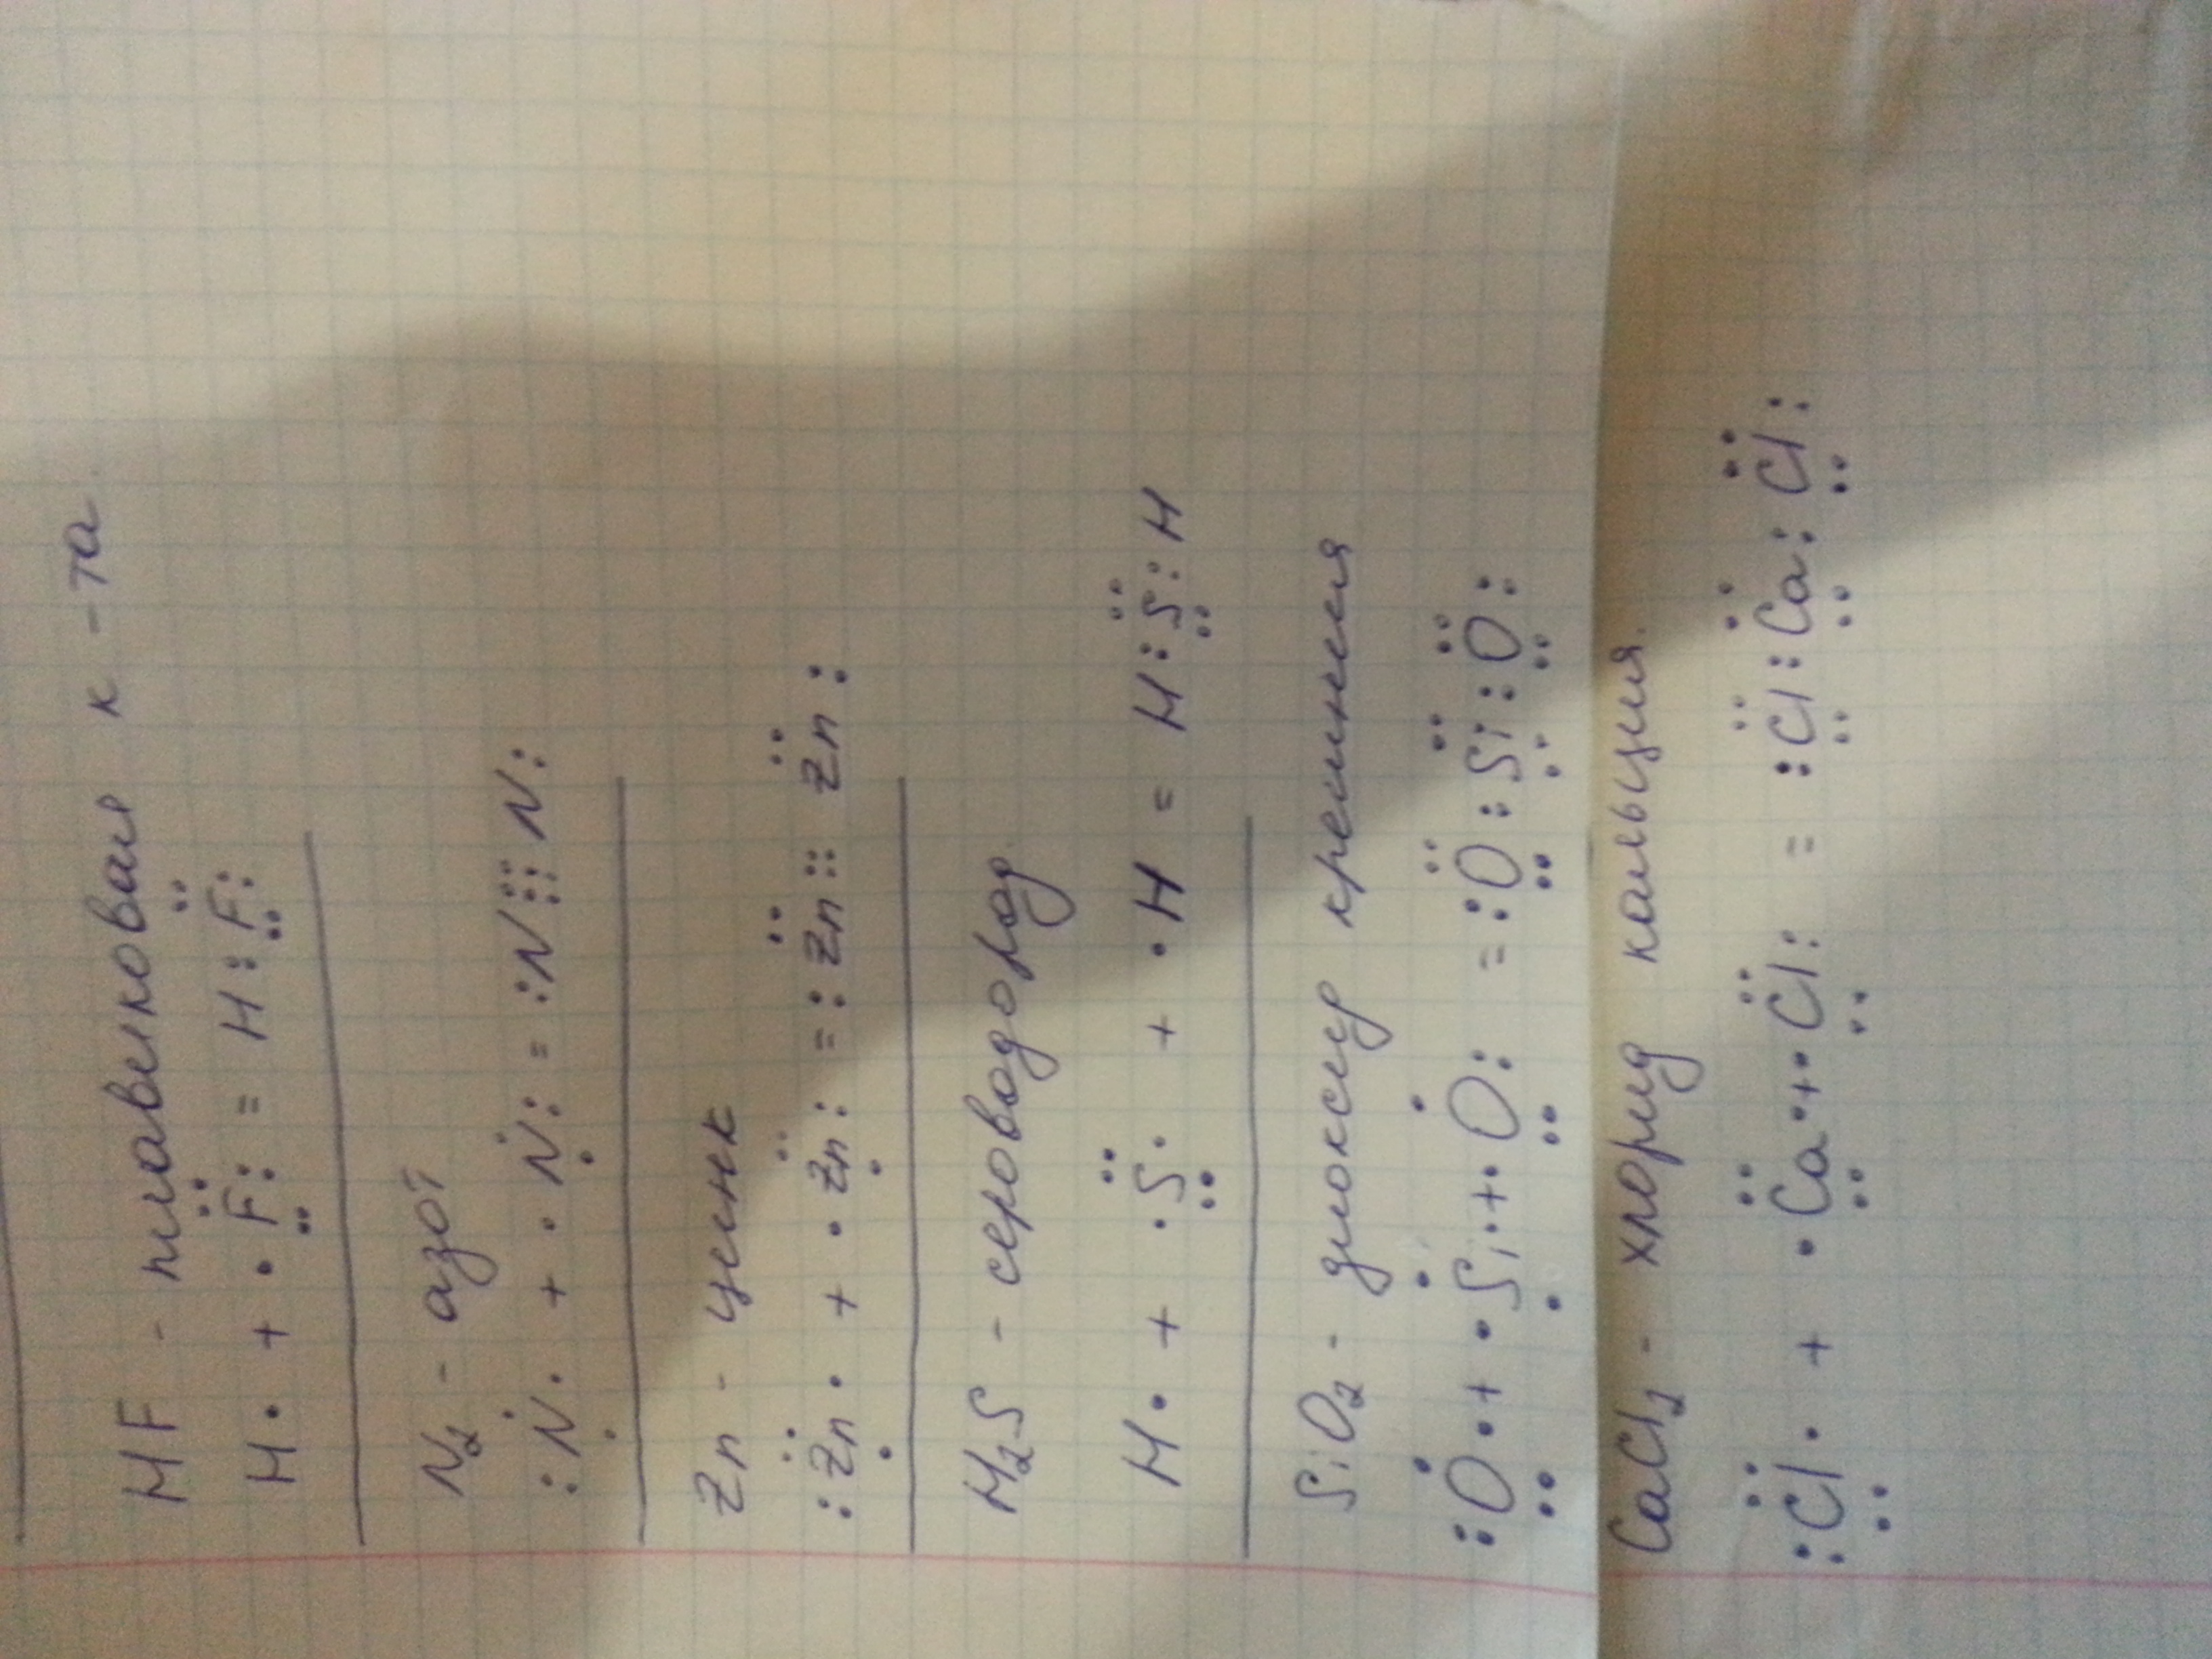 HF - плавиковая к-та.
H· + ·F̤̈: = H:F̤̈:
N₂ - азот
:Ṇ̇· + ·Ṇ̇: = :N⋮⋮N:
Zn - цинк
:Zṇ̈· + ·Zṇ̈: = :Zn̈::Zn̈:
H₂S - сероводород.
H· + ·S̤̈· + ·H = H:S̤̈:H
SiO₂ - диоксид кремнения
:Ö̤· + ·Ṩi· + ·Ȯ̤: = :Ö̤:S̤̈i:Ö̤:
CaCl₂ - хлорид кальция.
:C̤̈l· + ·C̤̈a· + ·C̤̈l: = :C̤̈l:C̤̈a:C̤̈l: